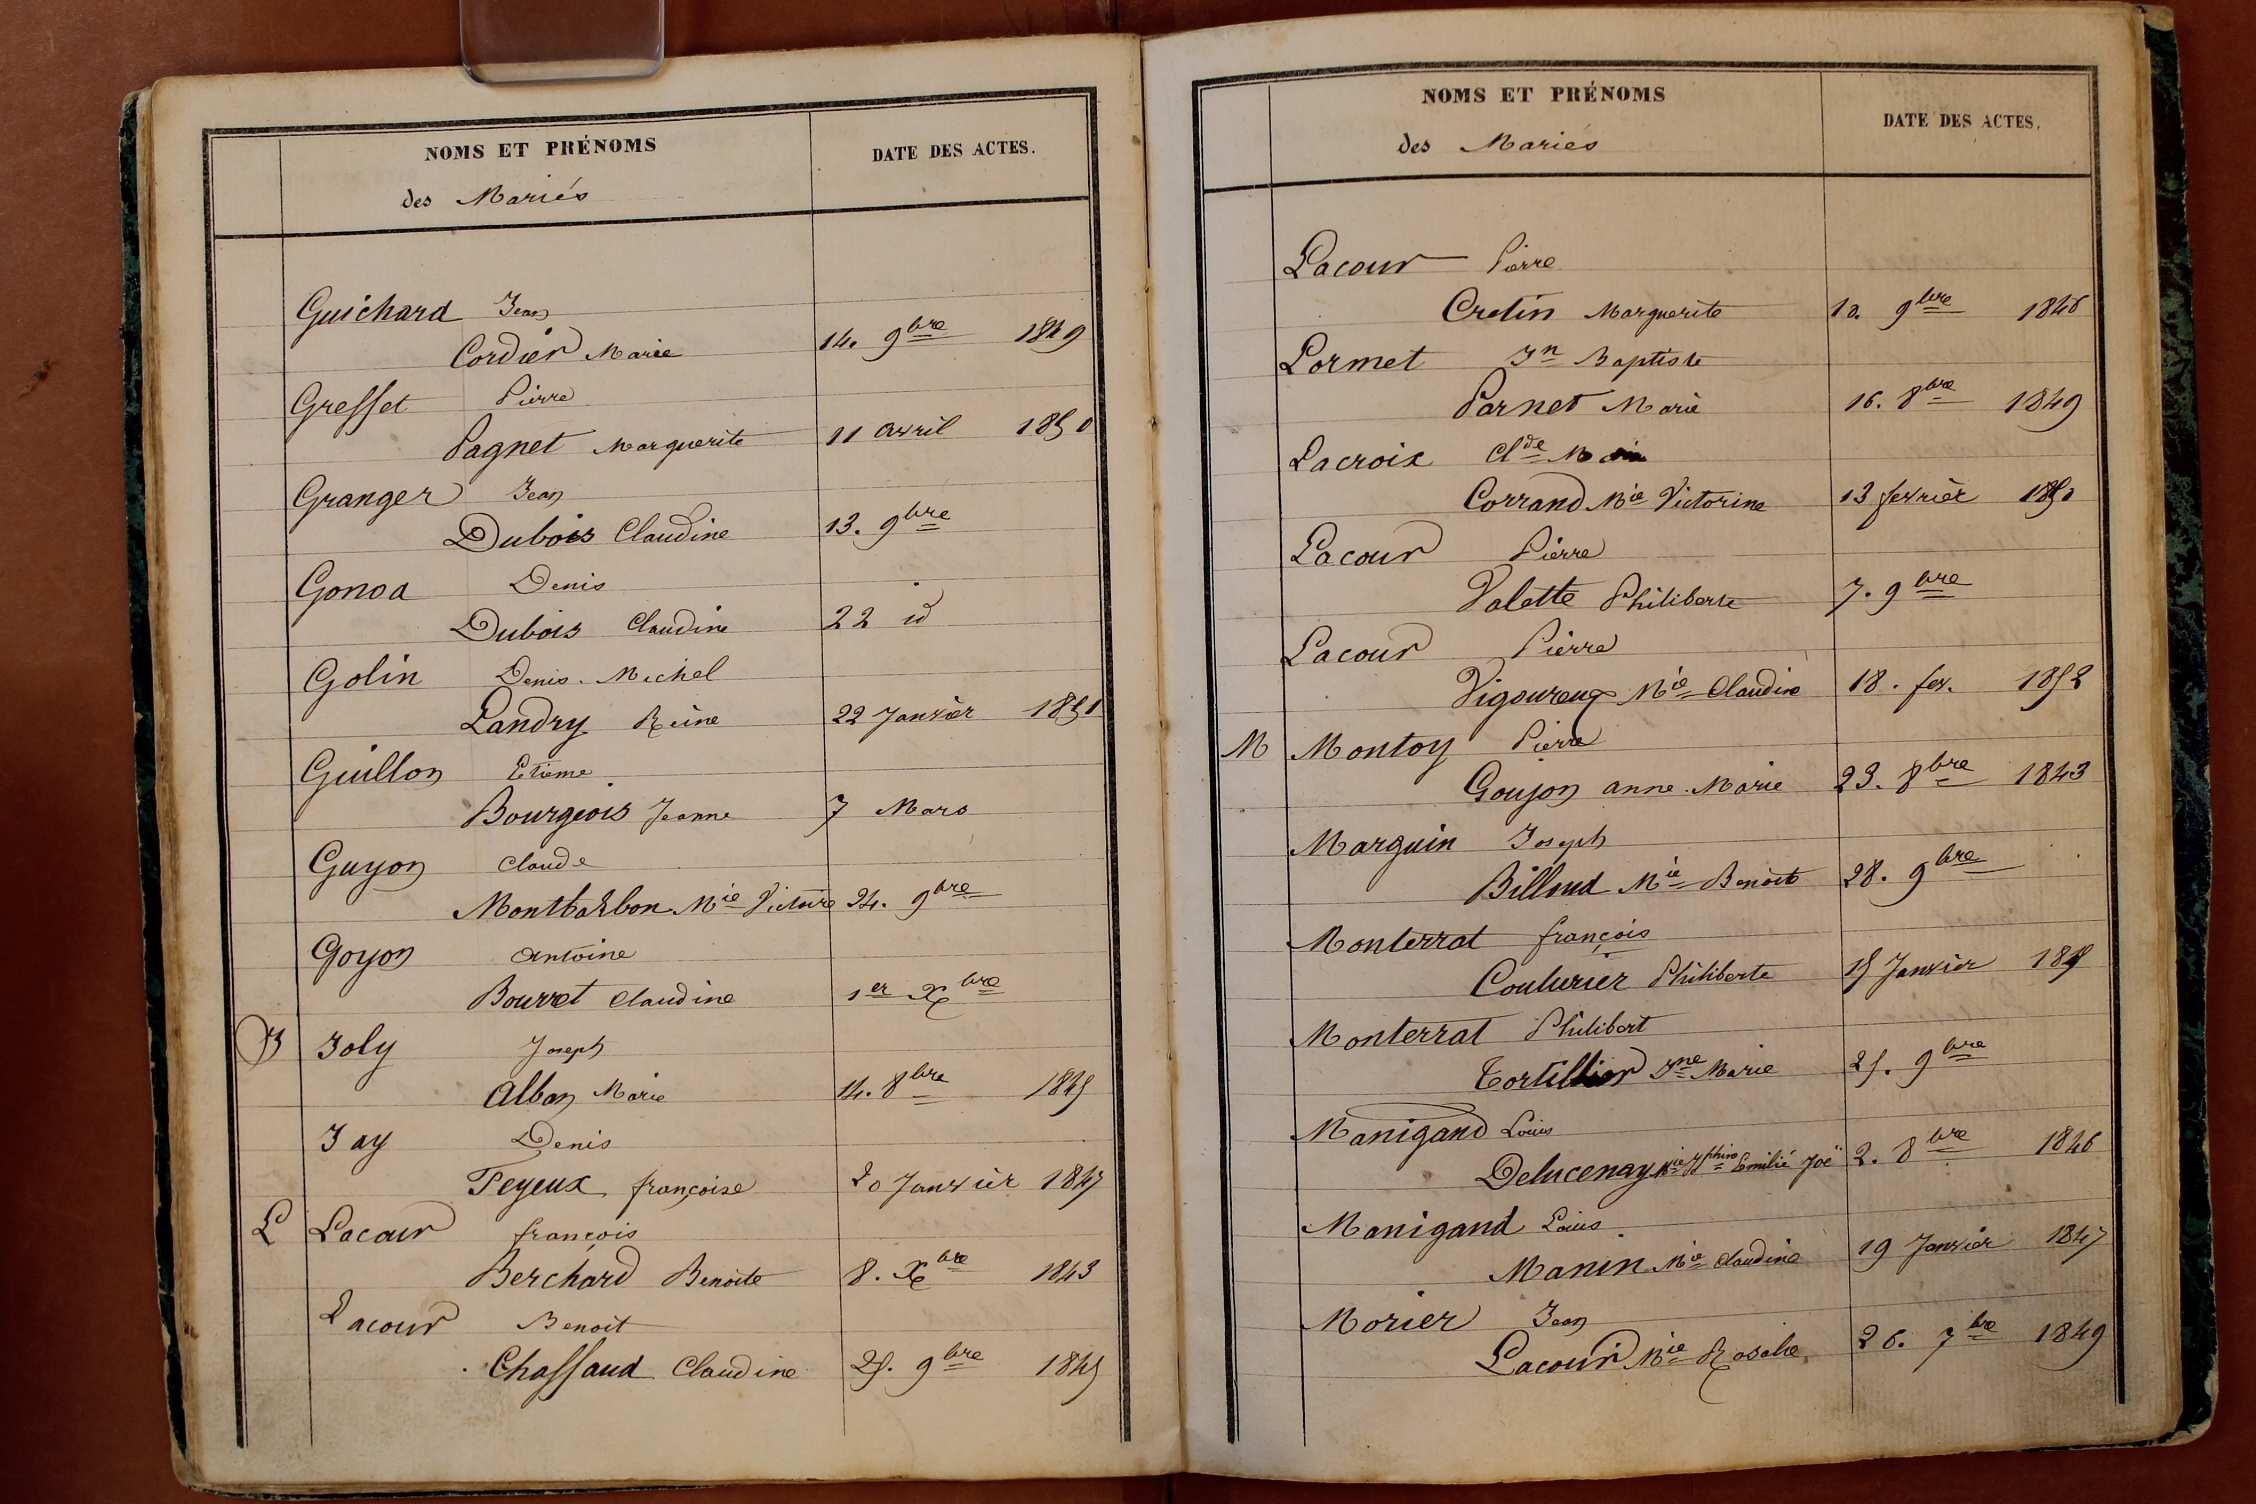 NOMS ET PRÉNOMS
des Mariés
DATE DES ACTES.
Guichard Jean
Cordier Marie 14. 9bre 1849
Gresset Pierre
Pagnet Marguerite 11 avril 1850
Granger Jean
Dubois Claudine 13. 9bre
Gonod Denis
Dubois Claudine 22 id
Golin Denis. Michel
Landry Reine 22 Janvier 1851
Guillon Etienne
Bourgeois Jeanne 7 Mars
Guyon Claude
Montbarbon Mie Victoire 24. 9bre
Goyon antoine
Bourret Claudine 1er Xbre
J Joly Joseph
Alban Marie 14. 8bre 1845
Jay Denis
Teyeux françoise 20 Janvier 1847
L Lacour françois
Berchard Benoite 8. Xbre 1843
Lacour Benoit
Chassaud Claudine 25. 9bre 1845
NOMS ET PRÉNOMS
des Mariés
DATE DES ACTES.
Lacour Pierre
Cretin Marguerite 10. 9bre 1846
Lormet Jn Baptiste
Parnet Marie 16. 8bre 1849
Lacroix Clde
Corrand Mie Victorine 13 fevrier
Lacour Pierre
Valette Philiberte 7. 9bre
Lacour Pierre
Vigoureux Mie Claudine 18. fev. 1852
M Montoy Pierre
Goujon anne. Marie 23. 8bre 1843
Marguin Joseph
Billoud Mie Benoit 28. 9bre
Monterrat françois
Couturier Philiberte 15 Janvier
Monterrat Philibert
Tortillier Marie 25. 9bre
Manigand Louis
Delucenay Mie Emilié 2. 8bre 1846
Manigand Louis
Manin Mie Claudine 19 Janvier 1847
Morier Jean
Lacour Mie Rosalie 26. 7bre 1849